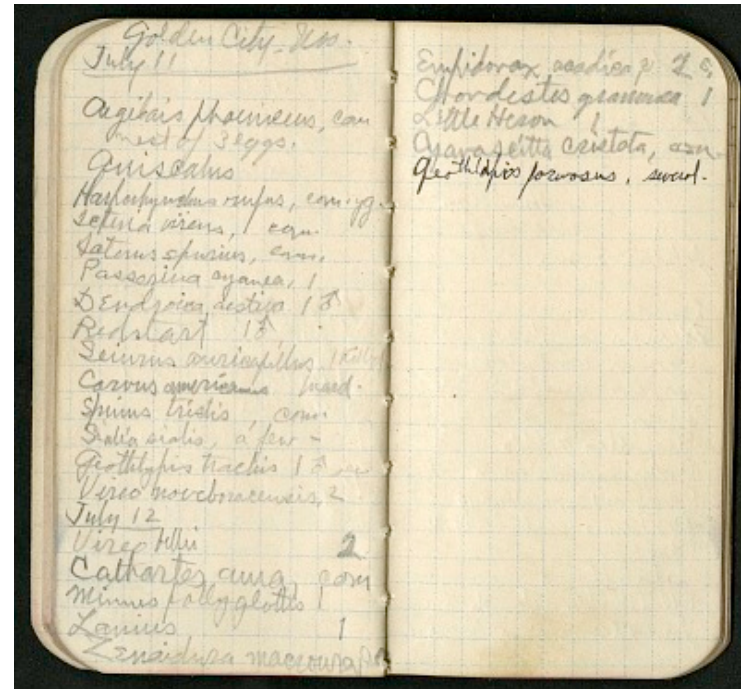 Golden City, Mo.
July 11
Agelaius phoeniceus, com
nest of 3 eggs.
Quiscalus
Harporhynchus rufus, com. yg.
Icteria virens, com.
Icterus spurius, com.
Passerina cyanea, 1
Dendroica aestiva 1 ♂
Redstart 1 ♂
Seiurus auricapillus, 1
Corvus americanus heard.
Spinus tristis, com.
Sialia sialis, a few
Geothlypis trichis 1 ♂
Vireo noveboracensis, 2
July 12
Vireo bellii 2
Cathartes aura, com
Mimus pollyglottis 1
Lanius 1
Zenaidura macroura
Empidonax acadica? 2
Chondestes grammaca 1
Little Heron 1
Cyanocitta cristata,
Geothlypis formosus,